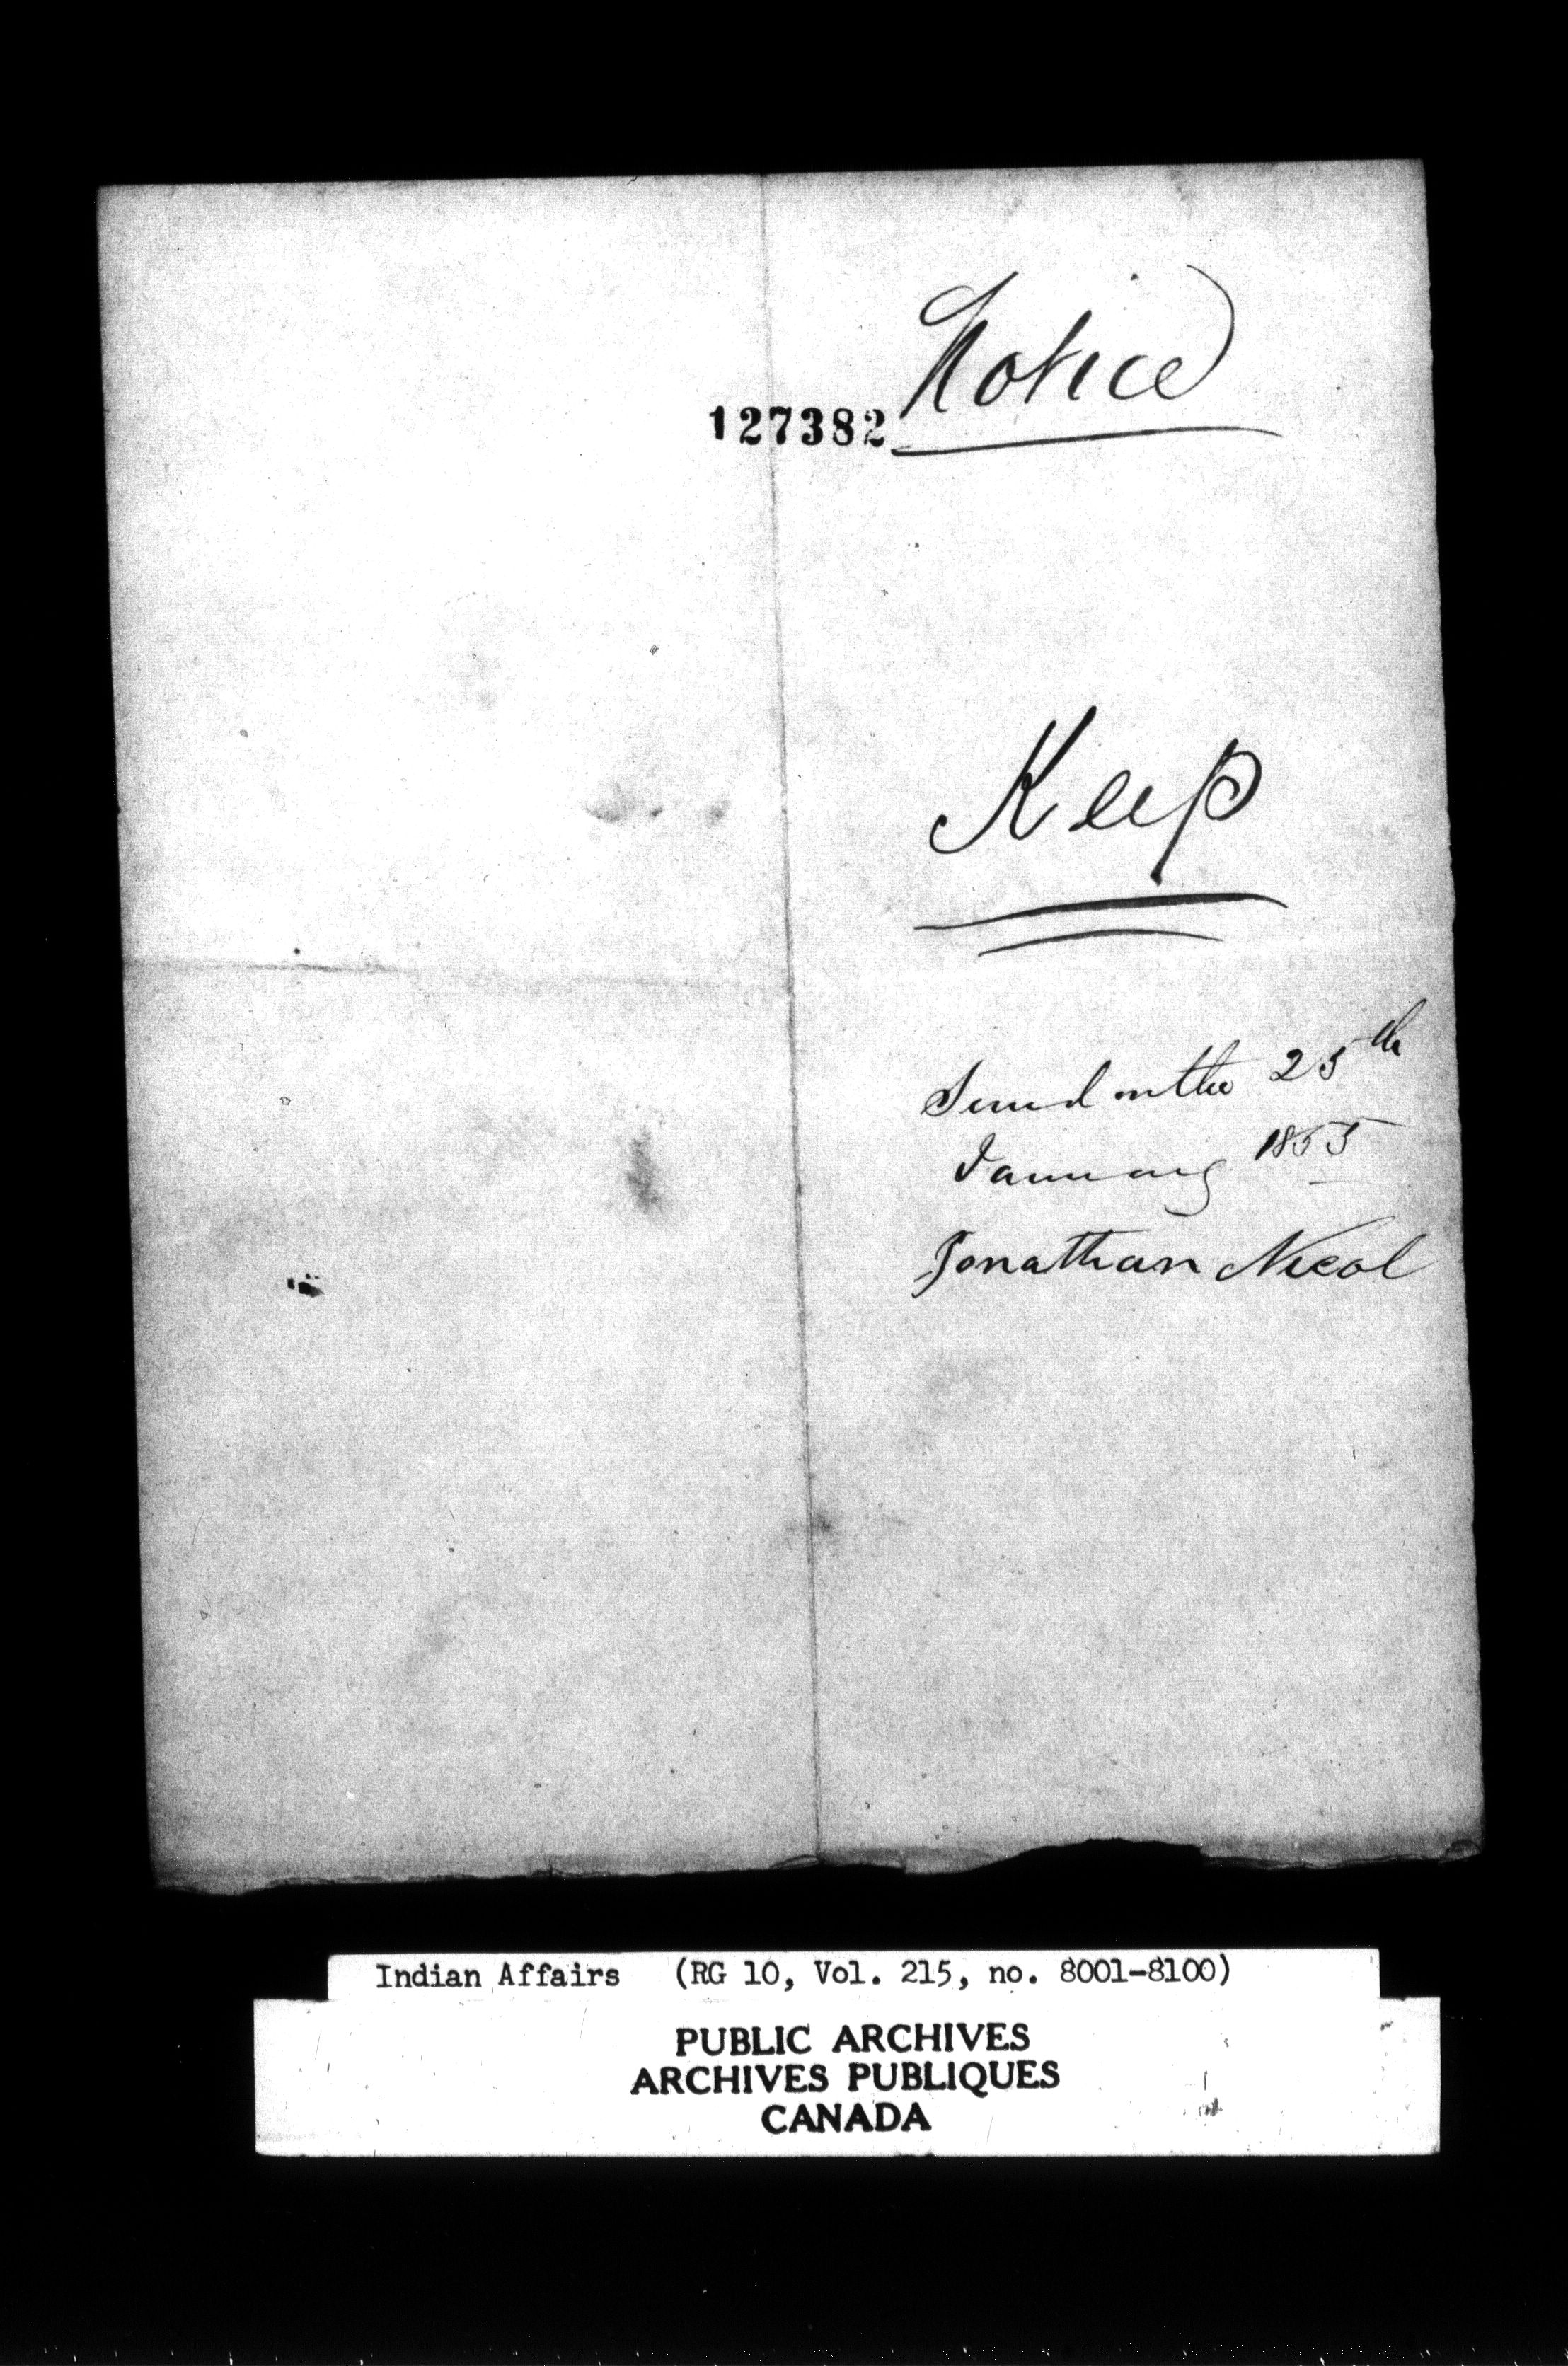 Notice
127382
Keep
Served on the 25th
January 1855
Jonathan Nicol
Indian Affairs (RG 10, Vol. 215, no. 8001-8100)
PUBLIC ARCHIVES
ARCHIVES PUBLIQUES
CANADA